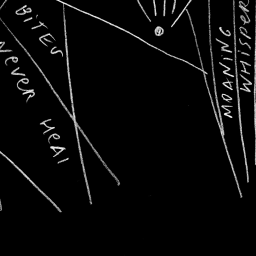 BiTES
NEVER HEAl
MOANING
WHISPER